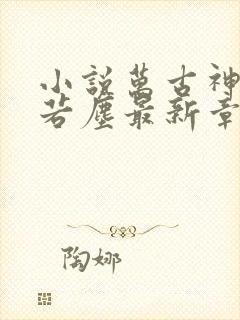 小説萬古神
若塵最新章
陶娜